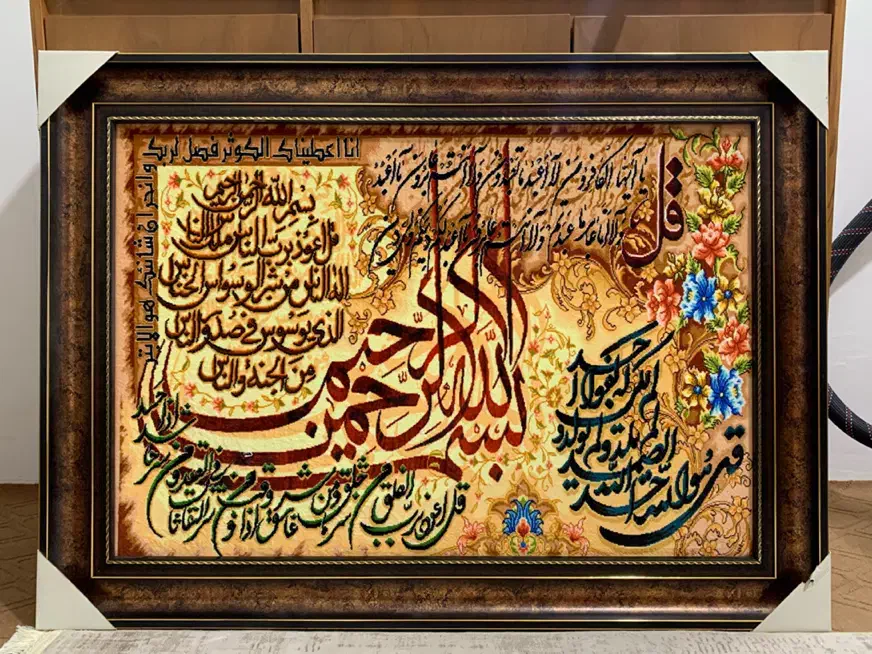 انا اعطيناك الكوثر فصل لربك
وانحر ان شانئك هو الابتر
بسم الله الرحمن الرحيم
قل اعوذ برب الناس ملك الناس
اله الناس من شر الوسواس الخناس
الذي يوسوس في صدور الناس
من الجنة والناس
قل
يا ايها الكافرون لا اعبد ما تعبدون ولا انتم عابدون ما اعبد
ولا انا عابد ما عبدتم ولا انتم عابدون ما اعبد لكم دينكم ولي دين
بسم الله الرحمن الرحيم
قل هو الله احد الله
الصمد لم يلد ولم يولد و
لم يكن له كفوا احد
قل اعوذ برب الفلق من شر ما خلق ومن شر غاسق اذا وقب ومن شر النفاثات في العقد ومن شر حاسد اذا حسد